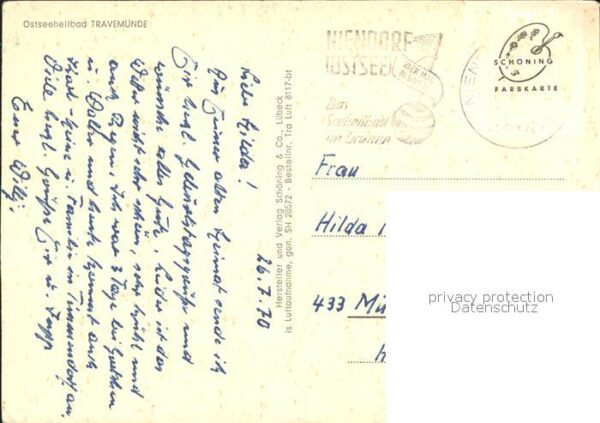 Ostseeheilbad TRAVEMÜNDE
26.7.70
Liebe Hilda!
Aus Deiner alten Heimat sende ich
Dir herzl. Geburtstagsgrüße und
wünsche alles Gute. Leider ist das
Wetter nicht sehr schön, sehr kühl und
auch Regen. Ich war 3 Tage bei
u. Walter und heute kommt auch
Karl-Heinz u. Familie in Timmendorf an.
Viele herzl. Grüße Dir u. Sepp
Euer Willi
Hersteller und Verlag Schöning & Co., Lübeck
is Luftaufnahme, gen. SH 28572 - Bestellnr. Tra Luft 8117-bt
NIENDORF
(OSTSEE)
Das
Seeheilbad
im Grünen
SCHÖNING
FARBKARTE
Frau
Hilda
433 Mü
privacy protection
Datenschutz